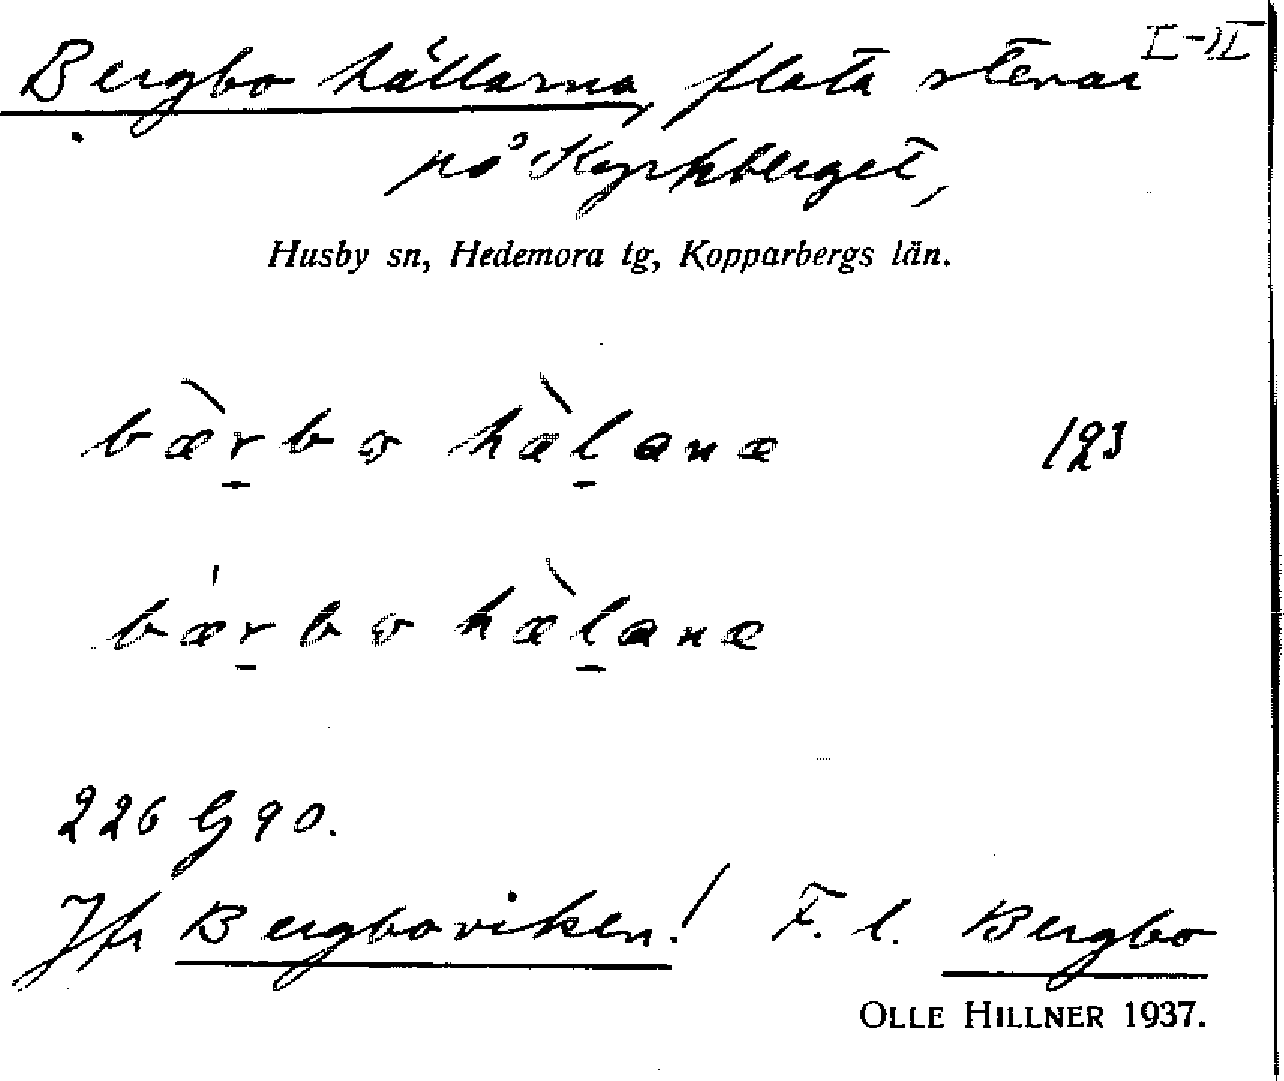 Bergbo hällarna, flata stenar I-II
på Kyrkberget,
Husby sn, Hedemora tg, Kopparbergs län.
bæ̀rbo hæ̀lanæ 123
bǽrbo hæ̀lanæ
226 G 90.
Jfr Bergboviken! F. l. Bergbo
OLLE HILLNER 1937.